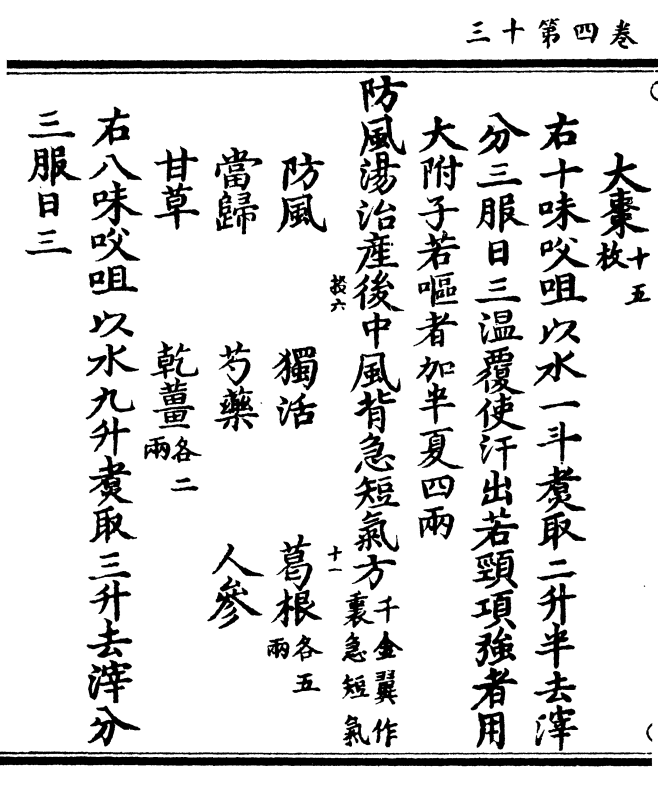 三十第四卷
大棗十五枚
右十味㕮咀以水一斗煑取二升半去滓
分三服日三温覆使汗出若頸項強者用
大附子若嘔者加半夏四兩
防風湯治産後中風背急短氣方千金翼作裏急短氣
校六
十一
防風 獨活 葛根各五兩
當歸 芍藥 人參
甘草 乾薑各二兩
右八味㕮咀以水九升煑取三升去滓分
三服日三